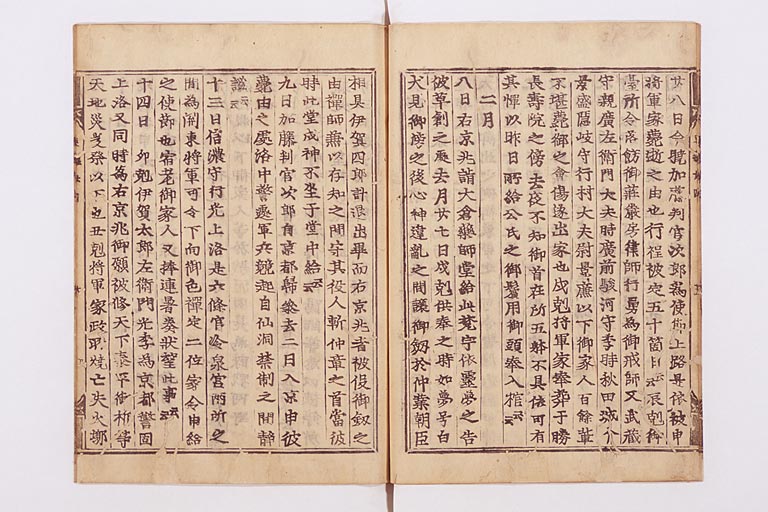 廿八日今曉加藤判官次郎爲使節上路是依被申
將軍家薨逝之由也行程被定五十箇日云云辰剋御
臺所令落飾御莊嚴房律師行勇爲御戒師又武藏
守親廣左衛門大夫時廣前駿河守季時秋田城介
景盛隱岐守行村大夫尉景廉以下御家人百餘輩
不堪薨御之會傷遂出家也戌剋將軍家奉葬于勝
長壽院之傍去夜不知御首在所五躰不具依可有
其憚以昨日所給公氏之御鬢用御頭奉入棺云云
二月
八日右京兆詣大倉藥師堂給此梵宇依靈夢之告
被草創之處去月廿七日戌剋供奉之時如夢号白
犬見御傍之後心神違亂之間讓御劔於仲業朝臣
相具伊賀四郎計退出畢而右京兆者被役御劔之
由禪師兼以存知之間守其役人斬仲章之首當彼
時此堂戌神不坐于堂中給云云
九日加藤判官次郎自京都歸參去二日入京申彼
薨由之處洛中驚遽軍兵競起自仙洞禁制之間靜
謐云云
十三日信濃守行光上洛是六條宮冷泉宮兩所之
間爲關東將軍可令下向御色禪定二位家令申給
之使節也宿老御家人又捧連署奏狀望此事云云
十四日卯剋伊賀太郎左衛門尉光季爲京都警固
上洛又同時爲右京兆御願被修天下泰平御祈等
天地災變祭以下也丑剋將軍家政所燒亡失火郷